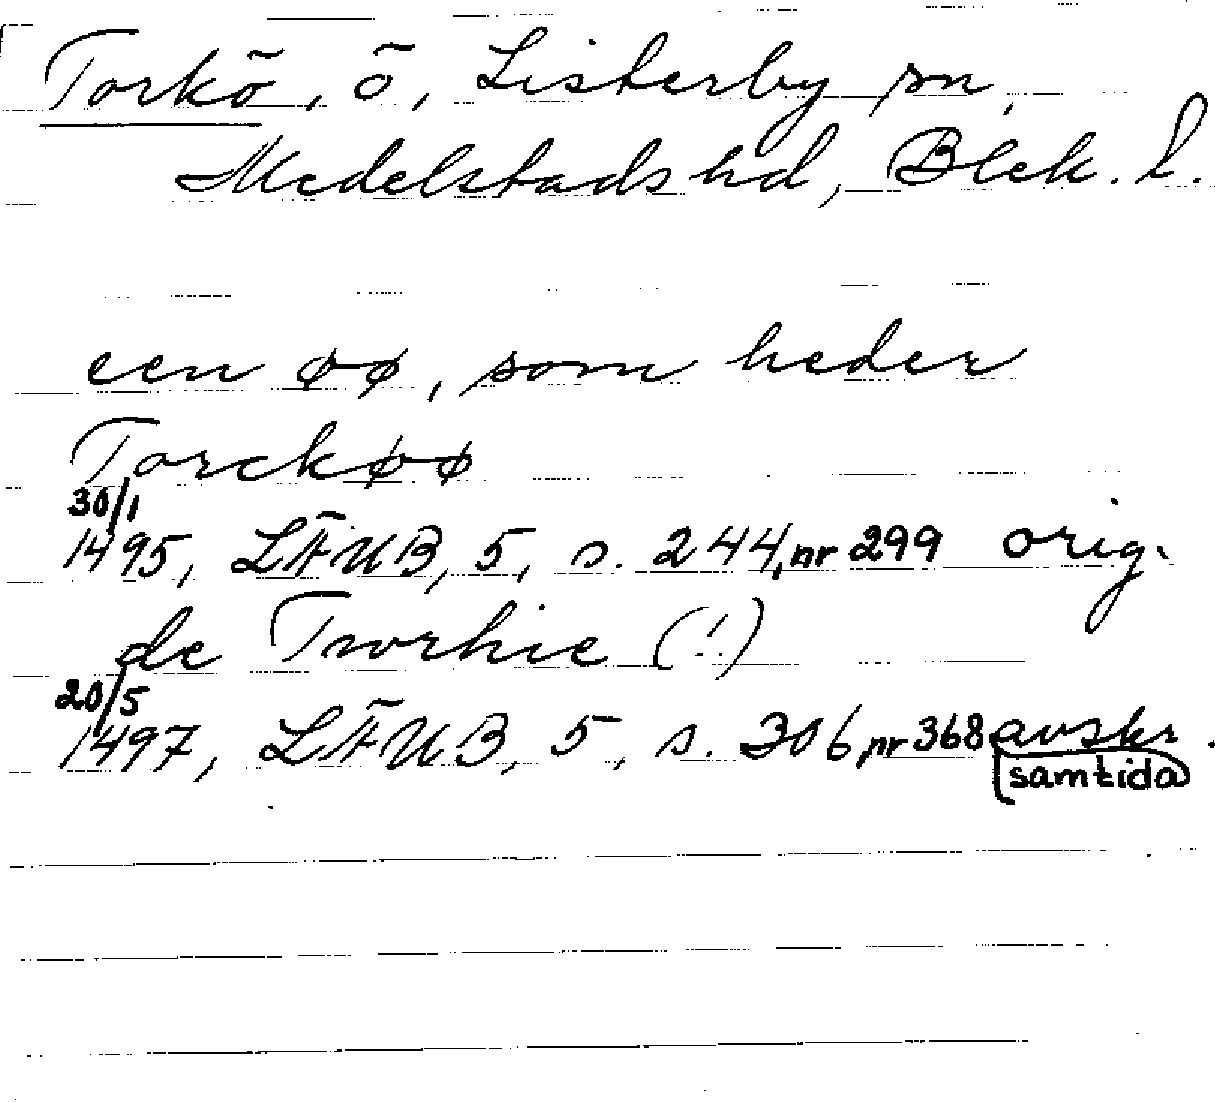 Torkö, ö, Listerby sn,
Medelstads hd, Blek. l.
een øø, som heder
Torckøø
30/1
1495, LÄUB, 5, s. 244, nr 299 orig.
de Tworhie (!)
20/5
1497, LÄUB, 5, s. 306, nr 368 avskr.
samtida